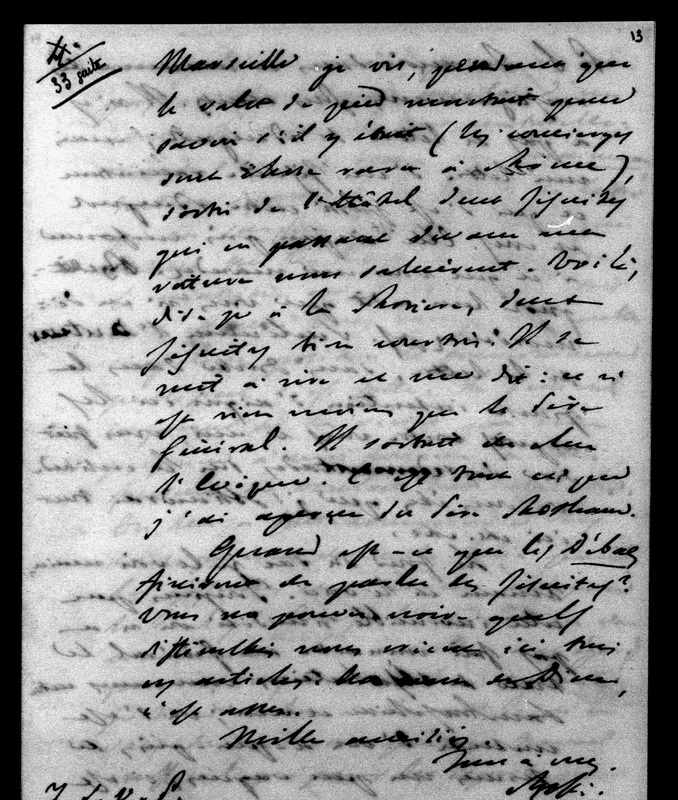 13
33 suite
Marseille je vis, pendant que
le valet de pied montait pour
savoir s'il y était (les concierges
sont chose rare à Rome),
sortir de l'Hôtel deux Jésuites
qui en passant devant ma
voiture nous saluèrent. Voilà,
dis-je à la deux
Jésuites bien courtois! Il se
mit à rire et me dit: ce n'
est rien moins que le Père
Général. Il sortait de chez
l'Evêque. C'est tout ce que
j'ai aperçu du Père Roothaan.
Quand est-ce que les Débats
finiront de parler des Jésuites?
Vous ne pouvez voir quelles
difficultés nous créent ici tous
ces articles. de Dieu,
c'est assez.
Mille amitiés
Tout à vous.